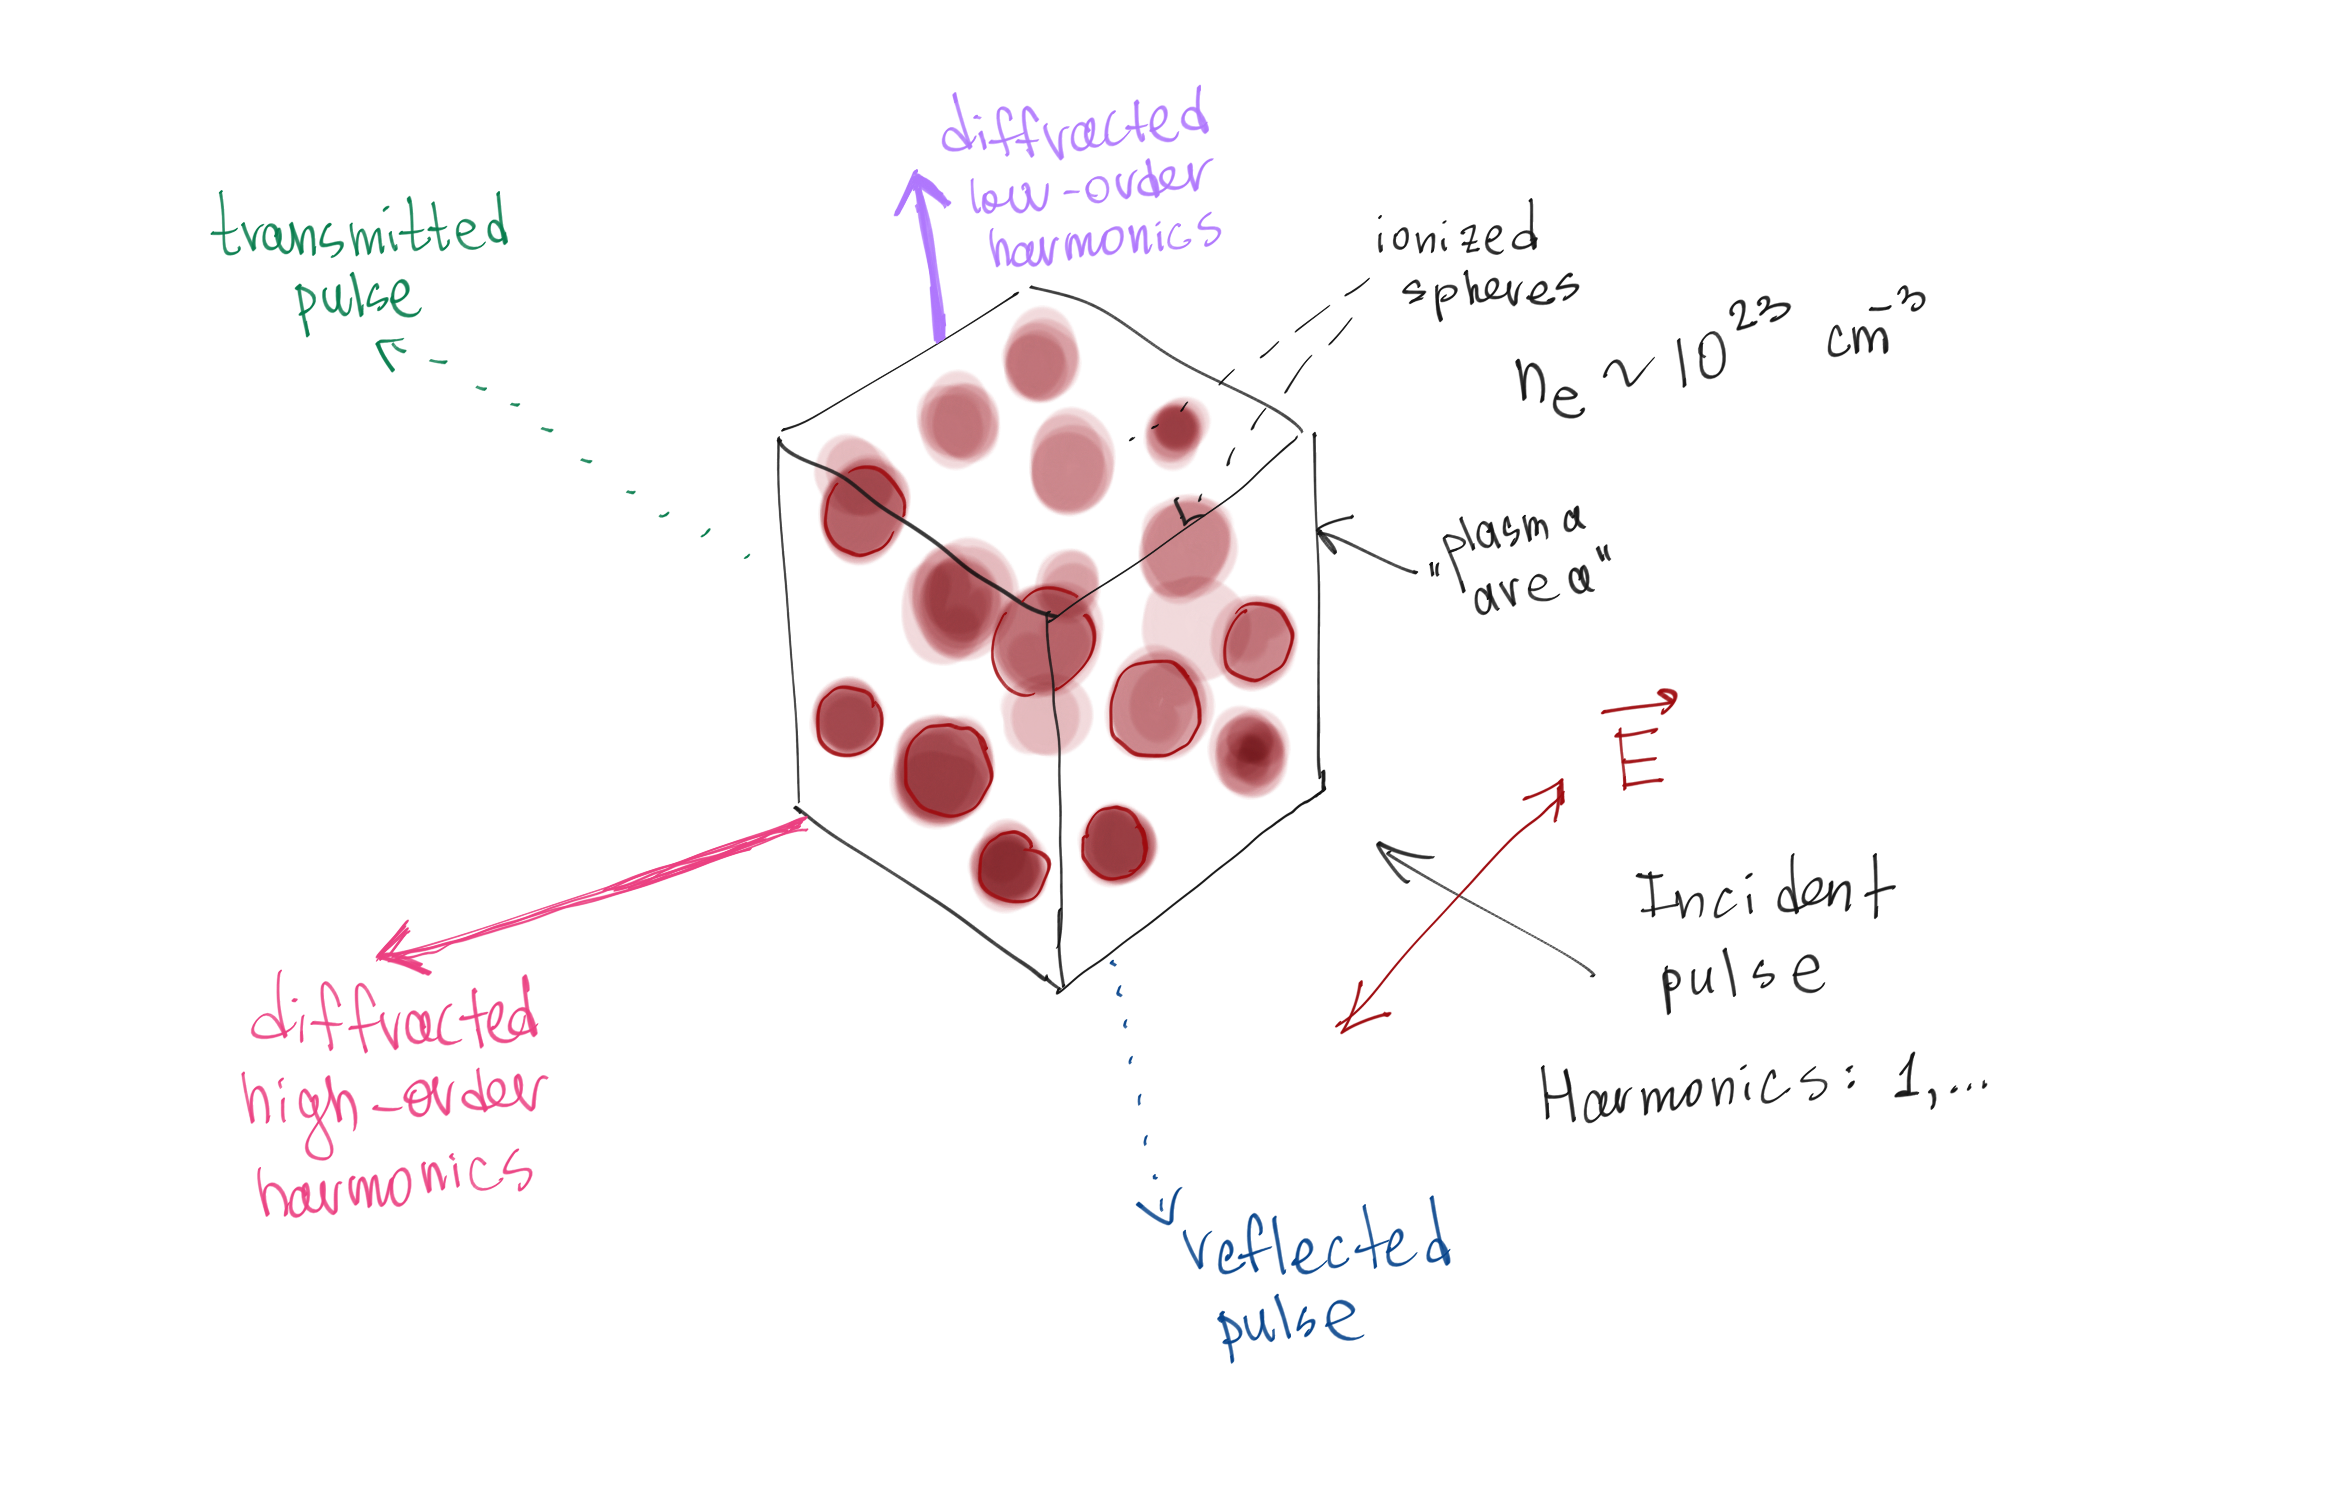 diffracted
low-order
harmonics
transmitted
pulse
ionized
spheres
nₑ ~ 10²³ cm⁻³
"plasma
area"
E⃗
Incident
pulse
Harmonics: 1,...
diffracted
high-order
harmonics
reflected
pulse